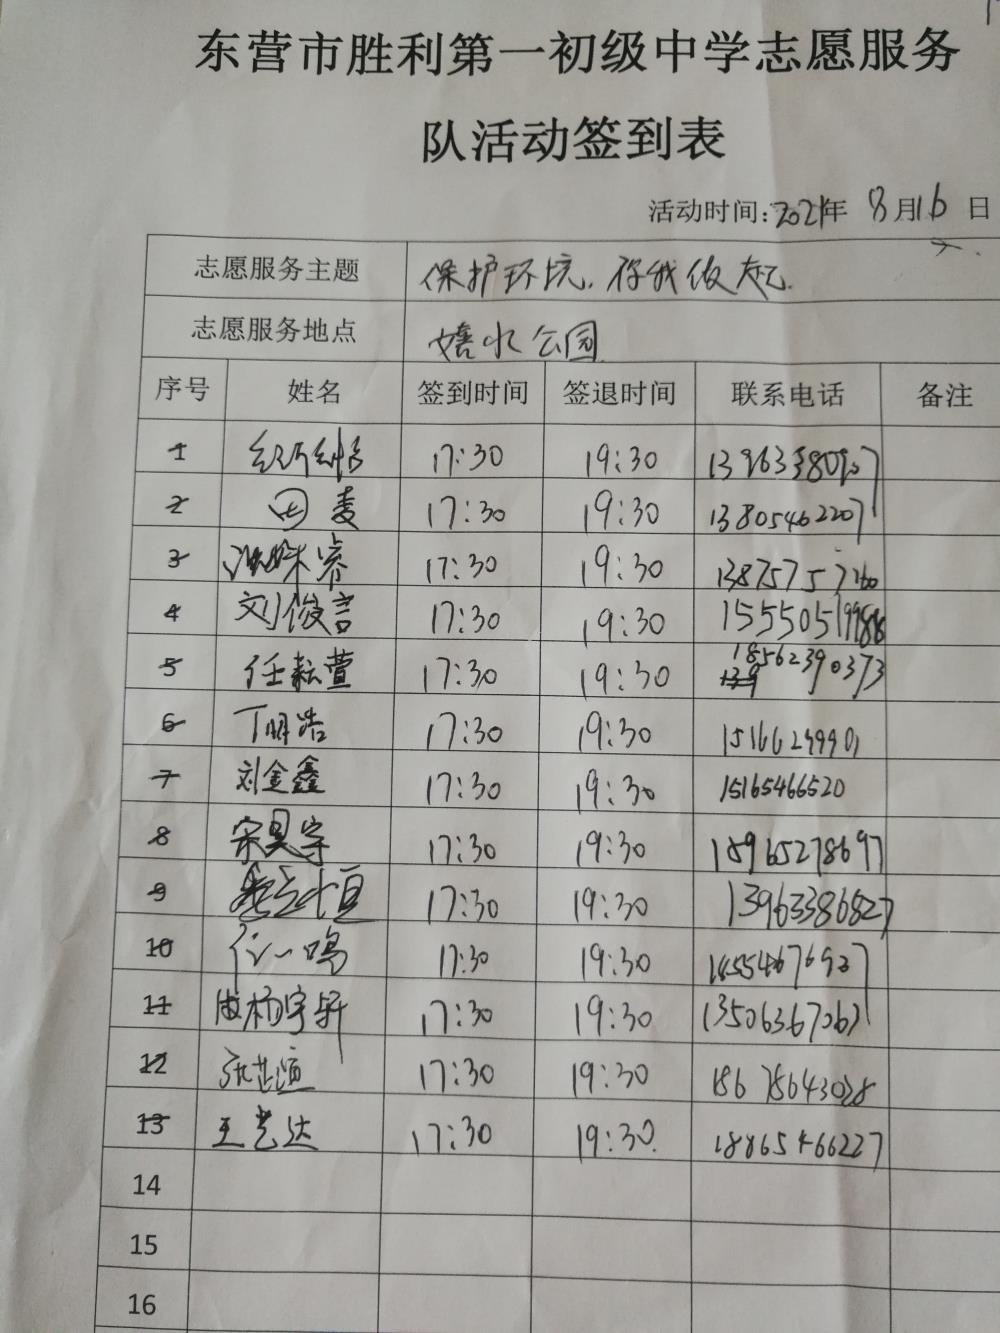 东营市胜利第一初级中学志愿服务
队活动签到表
活动时间:2021年 8月16日
志愿服务主题 保护环境,
志愿服务地点 嬉水公园
序号 姓名 签到时间 签退时间 联系电话 备注
1 17:30 19:30
2 田麦 17:30 19:30 13805462207
3 17:30 19:30
4 刘俊言 17:30 19:30
5 任耘萱 17:30 19:30 18562390373
6 丁明浩 17:30 19:30
7 刘金鑫 17:30 19:30 15165466520
8 宋昊宇 17:30 19:30 18965278697
9 17:30 19:30 13963386827
10 任一鸣 17:30 19:30
11 杨宇轩 17:30 19:30 13506367067
12 17:30 19:30 18678643028
13 王艺达 17:30 19:30 18865466227
14
15
16